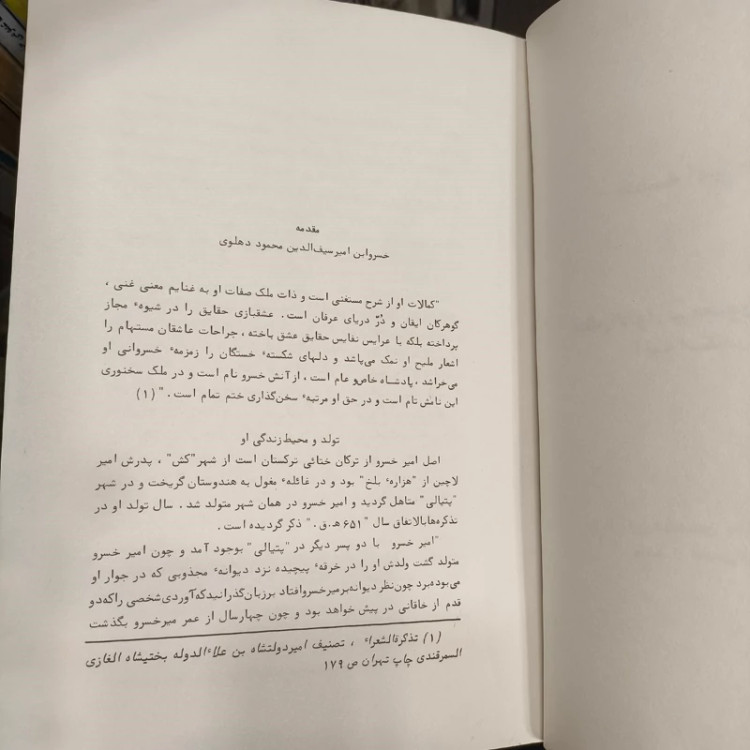 مقدمه
خسروابن امیرسیف‌الدین محمود دهلوی
"کمالات او از شرح مستغنی است و ذات ملک صفات او به غنایم معنی غنی ،
گوهرکان ایقان و دُرّ دریای عرفان است . عشقبازی حقایق را در شیوهء مجاز
پرداخته بلکه با عرایس نفایس حقایق عشق باخته ، جراحات عاشقان مستهام را
اشعار ملیح او نمک می‌پاشد و دلهای شکستهء خستگان را زمزمهء خسروانی او
می‌خراشد ، پادشاه خاص‌و عام است ، ازآنش خسرو نام است و در ملک سخنوری
این نامش تام است و در حق او مرتبهء سخن‌گذاری ختم تمام است . " (۱)
تولد و محیط‌زندگی او
اصل امیر خسرو از ترکان ختائی ترکستان است از شهر"کش" ، پدرش امیر
لاچین از "هزارهء بلخ" بود و در غائلهء مغول به هندوستان گریخت و در شهر
"پتیالی" متاهل گردید و امیر خسرو در همان شهر متولد شد . سال تولد او در
تذکره‌هابالاتفاق سال "۶۵۱ ه‍.ق . " ذکر گردیده است .
"امیر خسرو با دو پسر دیگر در "پتیالی" بوجود آمد و چون امیر خسرو
متولد گشت ولدش او را در خرقهء پیچیده نزد دیوانهء مجذوبی که در جوار او
می‌بودبرد چون‌نظر دیوانه‌برمیرخسروافتاد برزبان‌گذرانیدکه‌آوردی‌شخصی راکه‌دو
قدم از خاقانی در پیش خواهد بود و چون چهارسال از عمر میرخسرو بگذشت
(۱) تذکرةالشعراء ، تصنیف امیردولتشاه بن علاءالدوله بختیشاه الغازی
السمرقندی چاپ تهران ص ۱۷۹